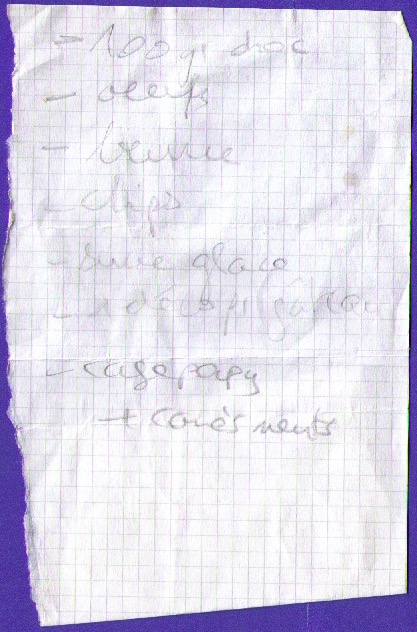 - 100 gr choc
- oeufs
- beurre
- chips
- sucre glace
- décap
- cagepapy
+ carrés ments